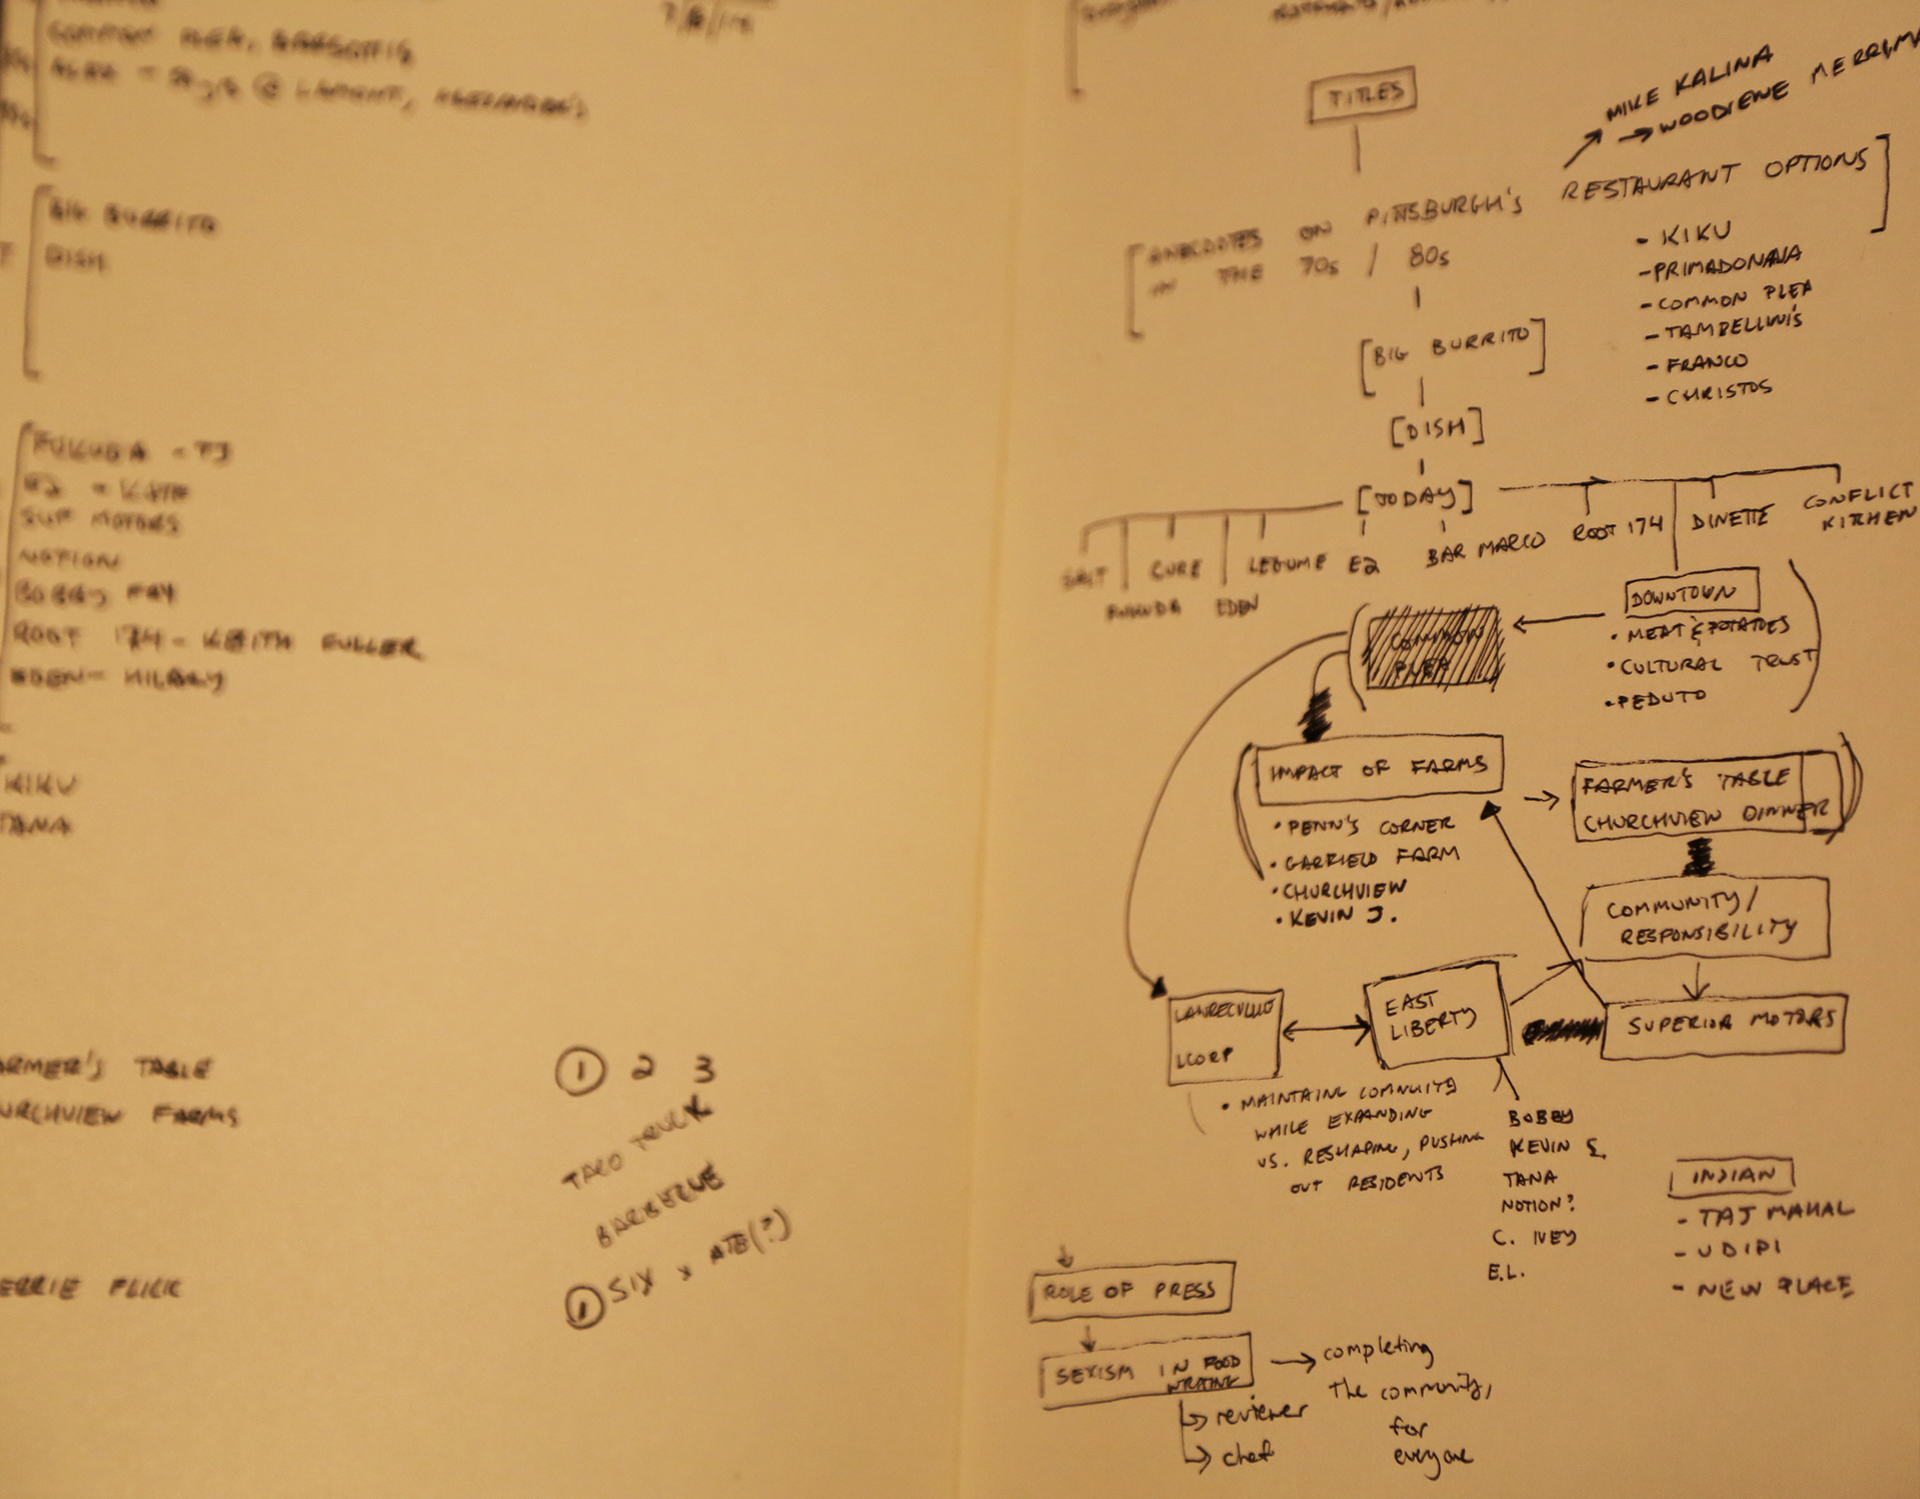 COMMON PLEA,
@ LAMONT,
BIG BURRITO
DISH
FUKUDA - TJ
E2 - KATE
SUP MOTORS
NOTION
BOBBY FRY
ROOT 174 - KEITH FULLER
EDEN - HILARY
KIKU
TANA
ARMER'S TABLE
URCHVIEW FARMS
ERRIE FLICK
1 2 3
TACO TRUCK
BARBERUE
1 SIX x ATE(?)
TITLES
MIKE KALINA
→ WOODIENE MERRIMA
ANECDOTES ON PITTSBURGH'S RESTAURANT OPTIONS
IN THE 70s / 80s
- KIKU
- PRIMADONNA
- COMMON PLEA
- TAMBELLINI'S
- FRANCO
- CHRISTOS
[BIG BURRITO]
[DISH]
[TODAY]
SALT
FUKUDA
CURE
EDEN
LEGUME
E2
BAR MARCO
ROOT 174
DINETTE
CONFLICT
KITCHEN
DOWNTOWN
• MEAT & POTATOES
• CULTURAL TRUST
• PEDUTO
COMMON
PLEA
IMPACT OF FARMS
• PENN'S CORNER
• GARFIELD FARM
• CHURCHVIEW
• KEVIN J.
FARMER'S TABLE
CHURCHVIEW DINNER
COMMUNITY/
RESPONSIBILITY
SUPERIOR MOTORS
EAST
LIBERTY
LCORP
• MAINTAING COMNUITY
WHILE EXPANDING
VS. RESHAPING, PUSHING
OUT RESIDENTS
BOBBY
KEVIN S.
TANA
NOTION?
C. IVEY
E.L.
INDIAN
- TAJ MAHAL
- UDIPI
- NEW PLACE
ROLE OF PRESS
SEXISM IN FOOD
WRITING
→ reviewer
→ chef
→ completing
the community,
for
everyone